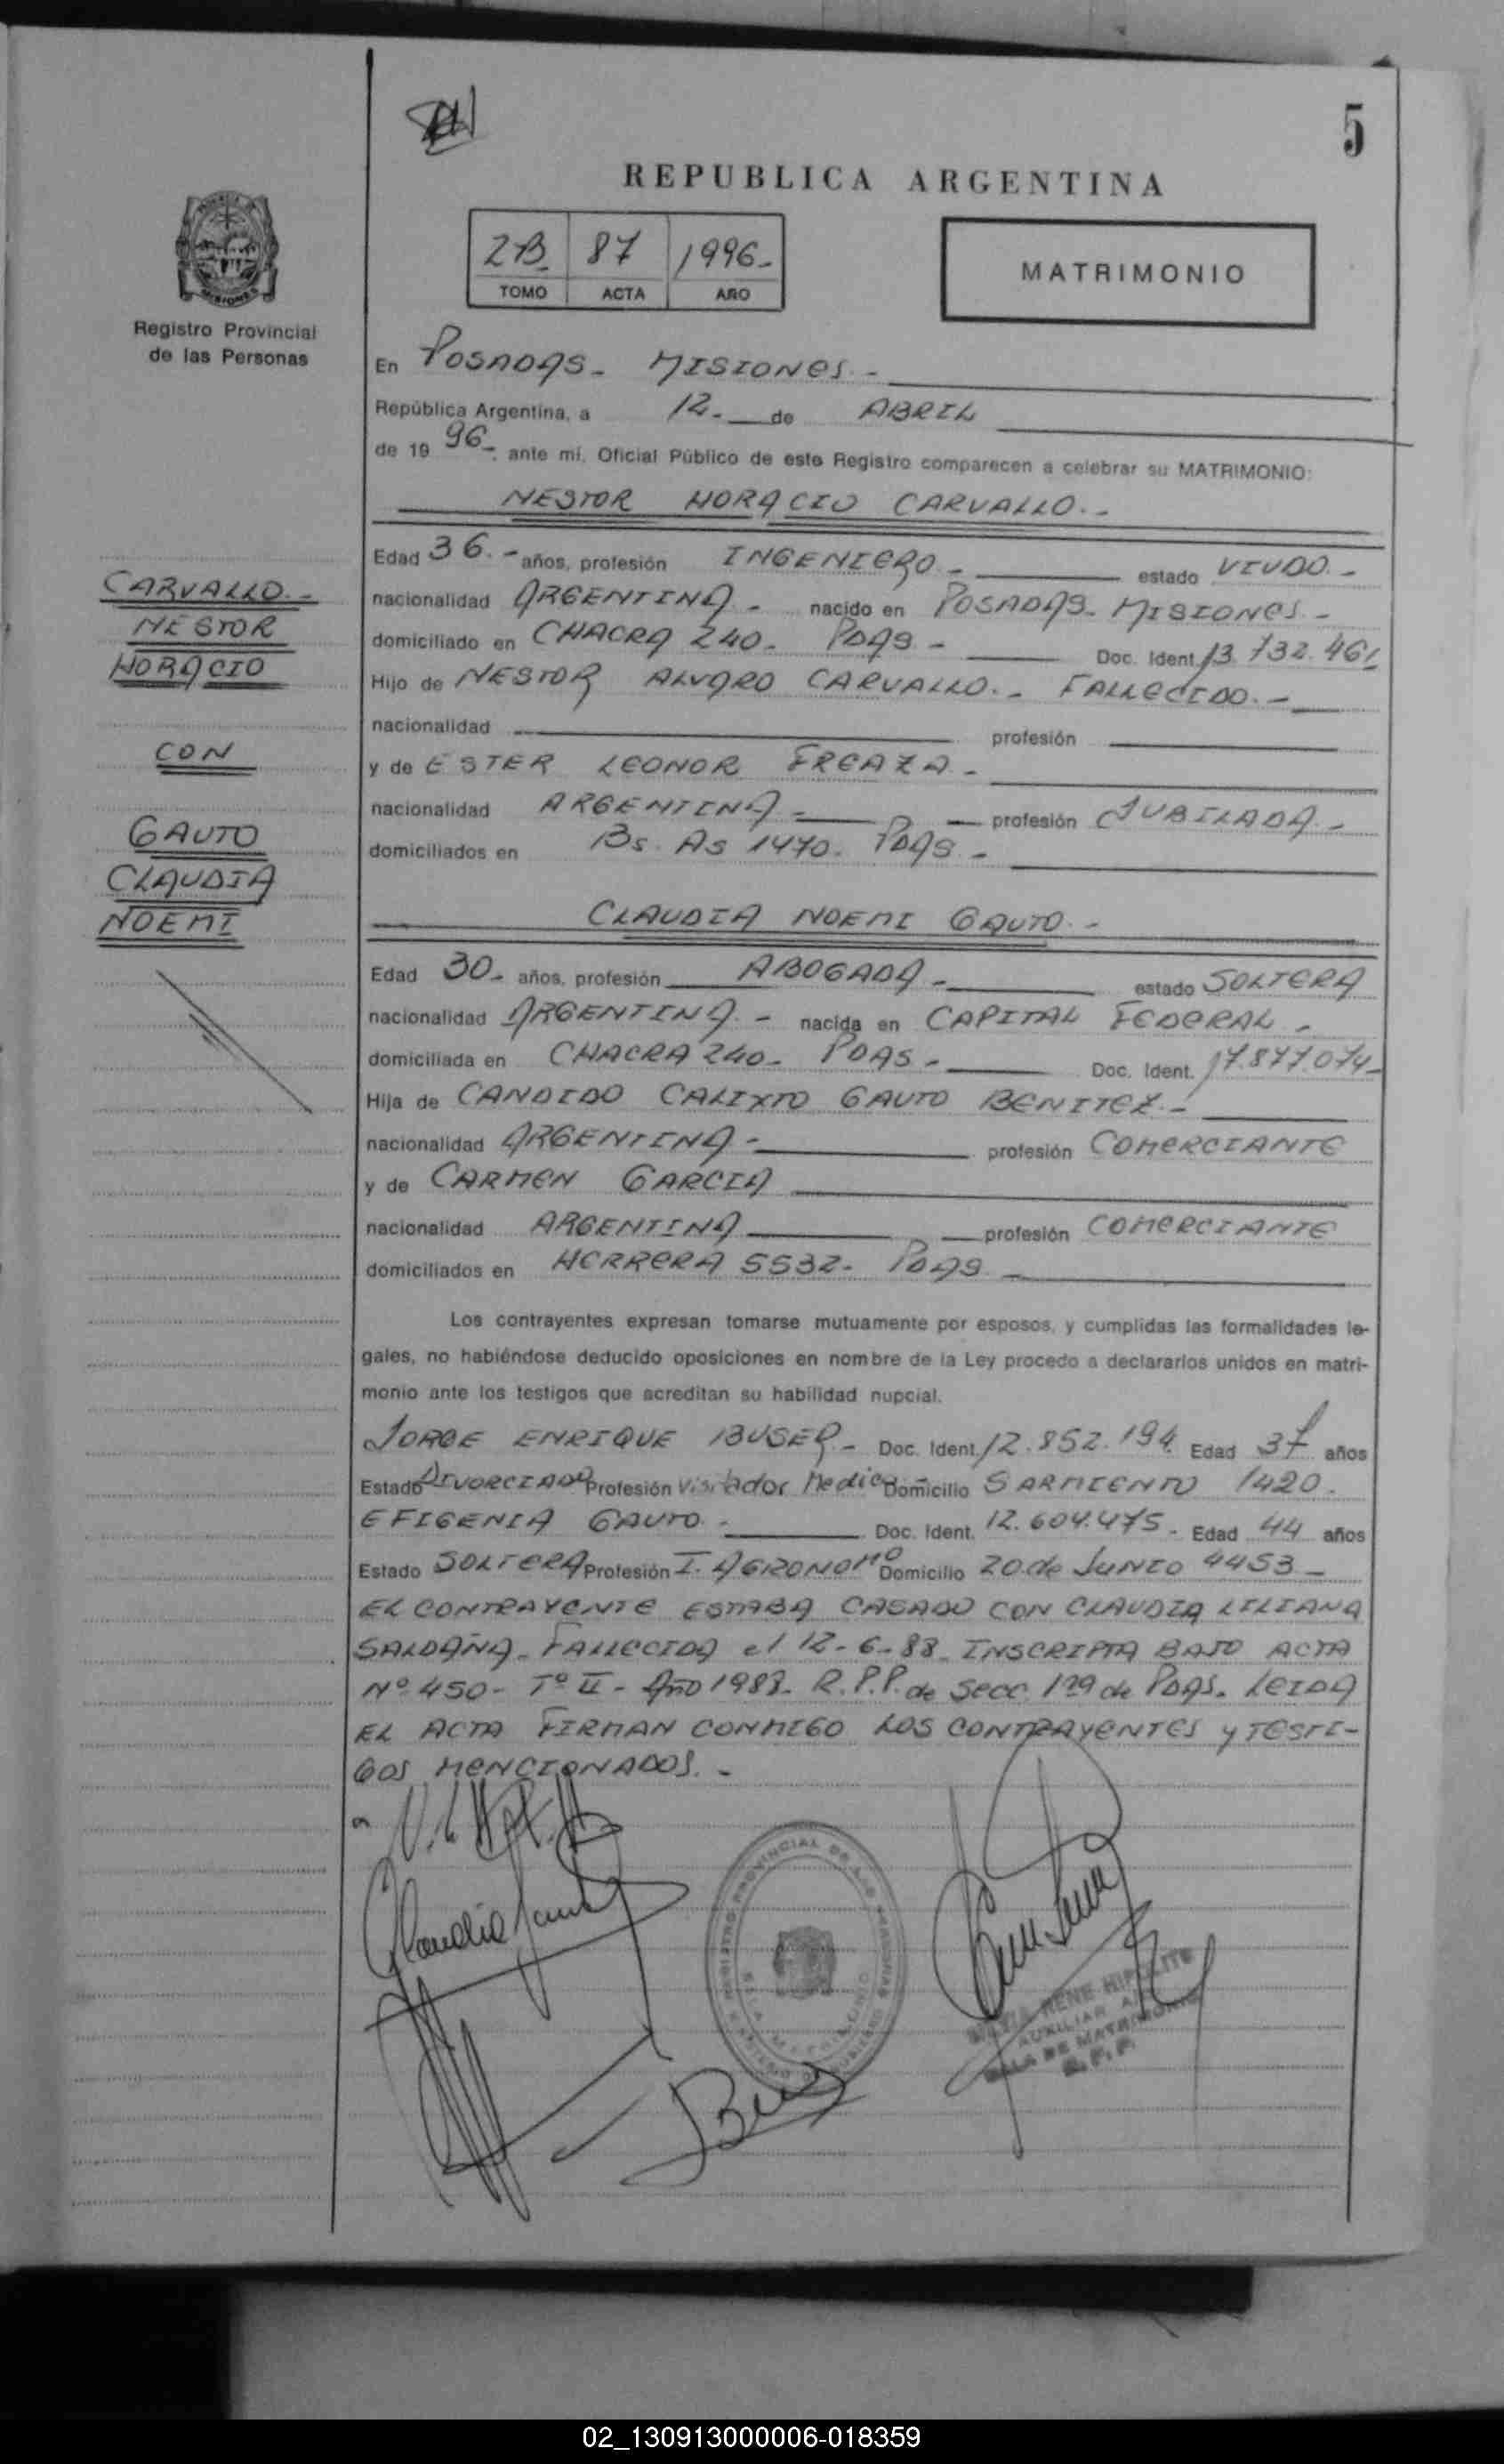 5
REPUBLICA ARGENTINA
2B. 87 1996.-
TOMO ACTA AÑO
MATRIMONIO
MISIONES
Registro Provincial
de las Personas
En POSADAS.- MISIONES.-
República Argentina, a 12.- de ABRIL
de 19 96.-, ante mí, Oficial Público de este Registro comparecen a celebrar su MATRIMONIO:
NESTOR HORACIO CARVALLO.-
Edad 36.- años, profesión INGENIERO.- estado VIUDO.-
nacionalidad ARGENTINA.- nacido en POSADAS.- MISIONES.-
domiciliado en CHACRA 240.- PDAS.- Doc. Ident. 13.732.461
Hijo de NESTOR ALVARO CARVALLO.- FALLECIDO.-
nacionalidad profesión
y de ESTER LEONOR FREAZA.-
nacionalidad ARGENTINA.- profesión JUBILADA.-
domiciliados en Bs. As 1470. PDAS.-
CARVALLO.-
NESTOR
HORACIO
CON
GAUTO
CLAUDIA
NOEMI
CLAUDIA NOEMI GAUTO.-
Edad 30.- años, profesión ABOGADA.- estado SOLTERA
nacionalidad ARGENTINA.- nacida en CAPITAL FEDERAL.-
domiciliada en CHACRA 240.- PDAS.- Doc. Ident. 17.877.074.-
Hija de CANDIDO CALIXTO GAUTO BENITEZ.-
nacionalidad ARGENTINA.- profesión COMERCIANTE
y de CARMEN GARCIA
nacionalidad ARGENTINA profesión COMERCIANTE
domiciliados en HERRERA 5532.- PDAS.-
Los contrayentes expresan tomarse mutuamente por esposos, y cumplidas las formalidades le-
gales, no habiéndose deducido oposiciones en nombre de la Ley procedo a declararlos unidos en matri-
monio ante los testigos que acreditan su habilidad nupcial.
JORGE ENRIQUE BUSER.- Doc. Ident. 12.852.194 Edad 37 años
Estado DIVORCIADO Profesión Visitador Medico Domicilio SARMIENTO 1420.
EFIGENIA GAUTO.- Doc. Ident. 12.604.475.- Edad 44 años
Estado SOLTERA Profesión I. AGRONOMO Domicilio 20 de JUNIO 4453.-
EL CONTRAYENTE ESTABA CASADO CON CLAUDIA LILIANA
SALDAÑA.- FALLECIDA el 12-6-88. INSCRIPTA BAJO ACTA
Nº 450- Tº II - Año 1988. R.P.P. de Secc. 1ra de PDAS. LEIDA
EL ACTA FIRMAN CONMIGO LOS CONTRAYENTES y TESTI-
GOS MENCIONADOS.-
REGISTRO PROVINCIAL DE LAS PERSONAS
RENE HIPOLITE
AUXILIAR
SALA DE MATRIMONIO
R.P.P.
02_130913000006-018359